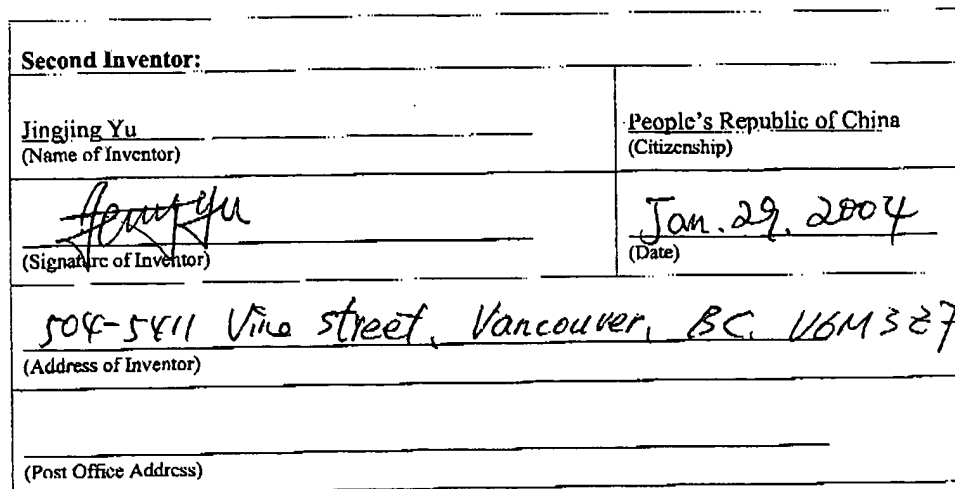 Second Inventor:
Jingjing Yu
(Name of Inventor)
People's Republic of China
(Citizenship)
Yu
(Signature of Inventor)
Jan. 29, 2004
(Date)
504-5411 Vine street, Vancouver, BC, V6M 3Z7
(Address of Inventor)
(Post Office Address)